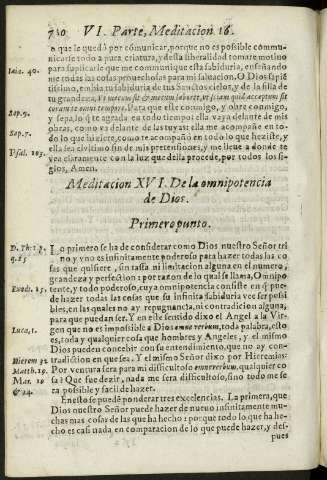 730 VI. Parte, Meditacion 16.
o que le quedó por comunicar, porque no es possible comunicarle todo a pura criatura, y desta liberalidad tomare motivo
para suplicarle que me communique esta sabiduria, enseñando
me todas las cosas prouechosas para mi saluacion. O Dios sapiē
Isai. 40.
tissimo, embia tu sabiduria de tus Sanctos cielos, y de la silla de
tu grandeza,
Sap. 9.
coram te omni tempore, Para que este conmigo, y obre conmigo,
y sepa lo q̃ te agrada en todo tiempo: ella vaya delante de mis
Sap. 7.
obras, como va delante de las tuyas: ella me acompañe en todo lo que hiziere, como te acompañó en todo lo que heziste, y
Psal. 103.
ella sea principio y fin de mis pretensiones, y me lleue a donde te
vea claramente con la luz que della procede, por todos los siglos, Amen.
Meditacion XVI. De la omnipotencia
de Dios.
Primero punto.
D. Th. 1. p.
q. 25
LO primero se ha de considerar como Dios nuestro Señor tri
no y vno es infinitamente poderoso para hazer todas las co
sas que quisiere, sin tassa ni limitacion alguna en el numero,
grandeza y perfection: por razon de lo qual se llama, Omnipo
Exodi. 15.
tente, y todo poderoso, cuya omnipotencia consiste en q̃ puede hazer todas las cosas que su infinita sabiduria vee ser posibles, en las quales no ay repugnancia, ni contradicion alguna,
para que puedan ser. Y en este sentido dixo el Angel a la Vir-
Luca, 1.
gen que no es impossible a Dios omne verbum, toda palabra, esto
es, toda y qualquier cosa que hombres y Angeles, y el mismo
Dios pueden concebir con su entendimiento, que no ay con-
Hierem 32
tradicion en que sea. Y el mismo Señor dixo por Hieremias:
Matth. 19.
Por ventura sera para mi dificultoso omne verbum, qualquier co
Mar. 10
sa? Que fue dezir, nada me sera dificultoso, sino todo me se
& 14.
ra possible y facil de hazer.
En esto se puede ponderar tres excellencias. La primera, que
Dios nuestro Señor puede hazer de nueuo infinitamente muchas mas cosas de las que ha hecho: porque todo lo que ha hecho es casi nada, en comparacion de lo que puede hazer, y des-
pues